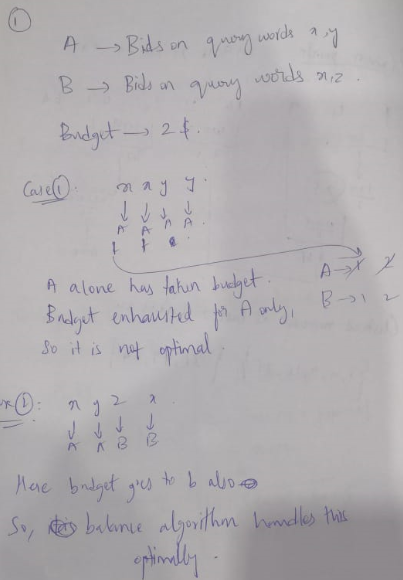 ①
A → Bids on query words x, y
B → Bids on query words x, z.
Budget → 2 $.
Case ①: x x y y
↓ ↓ ↓ ↓
A A A A
A alone has taken budget.
A → 1 2
Budget exhausted for A only,
B → 1 2
So it is not optimal.
②: x y z x
↓ ↓ ↓ ↓
A A B B
Here budget goes to b also
So, balance algorithm handles this
optimally.